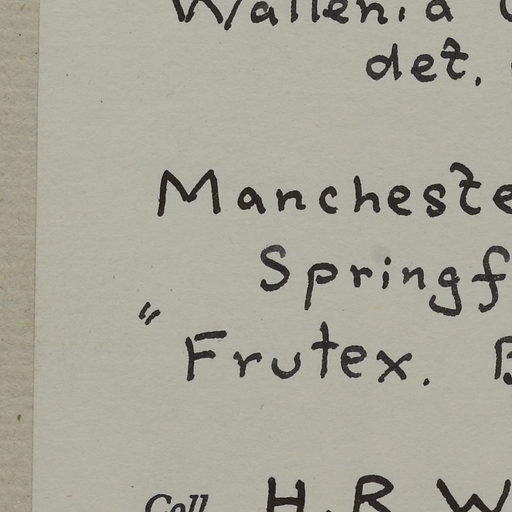 Wallenia
det.
Mancheste
Springf
" Frutex. B
Coll. H.R. W